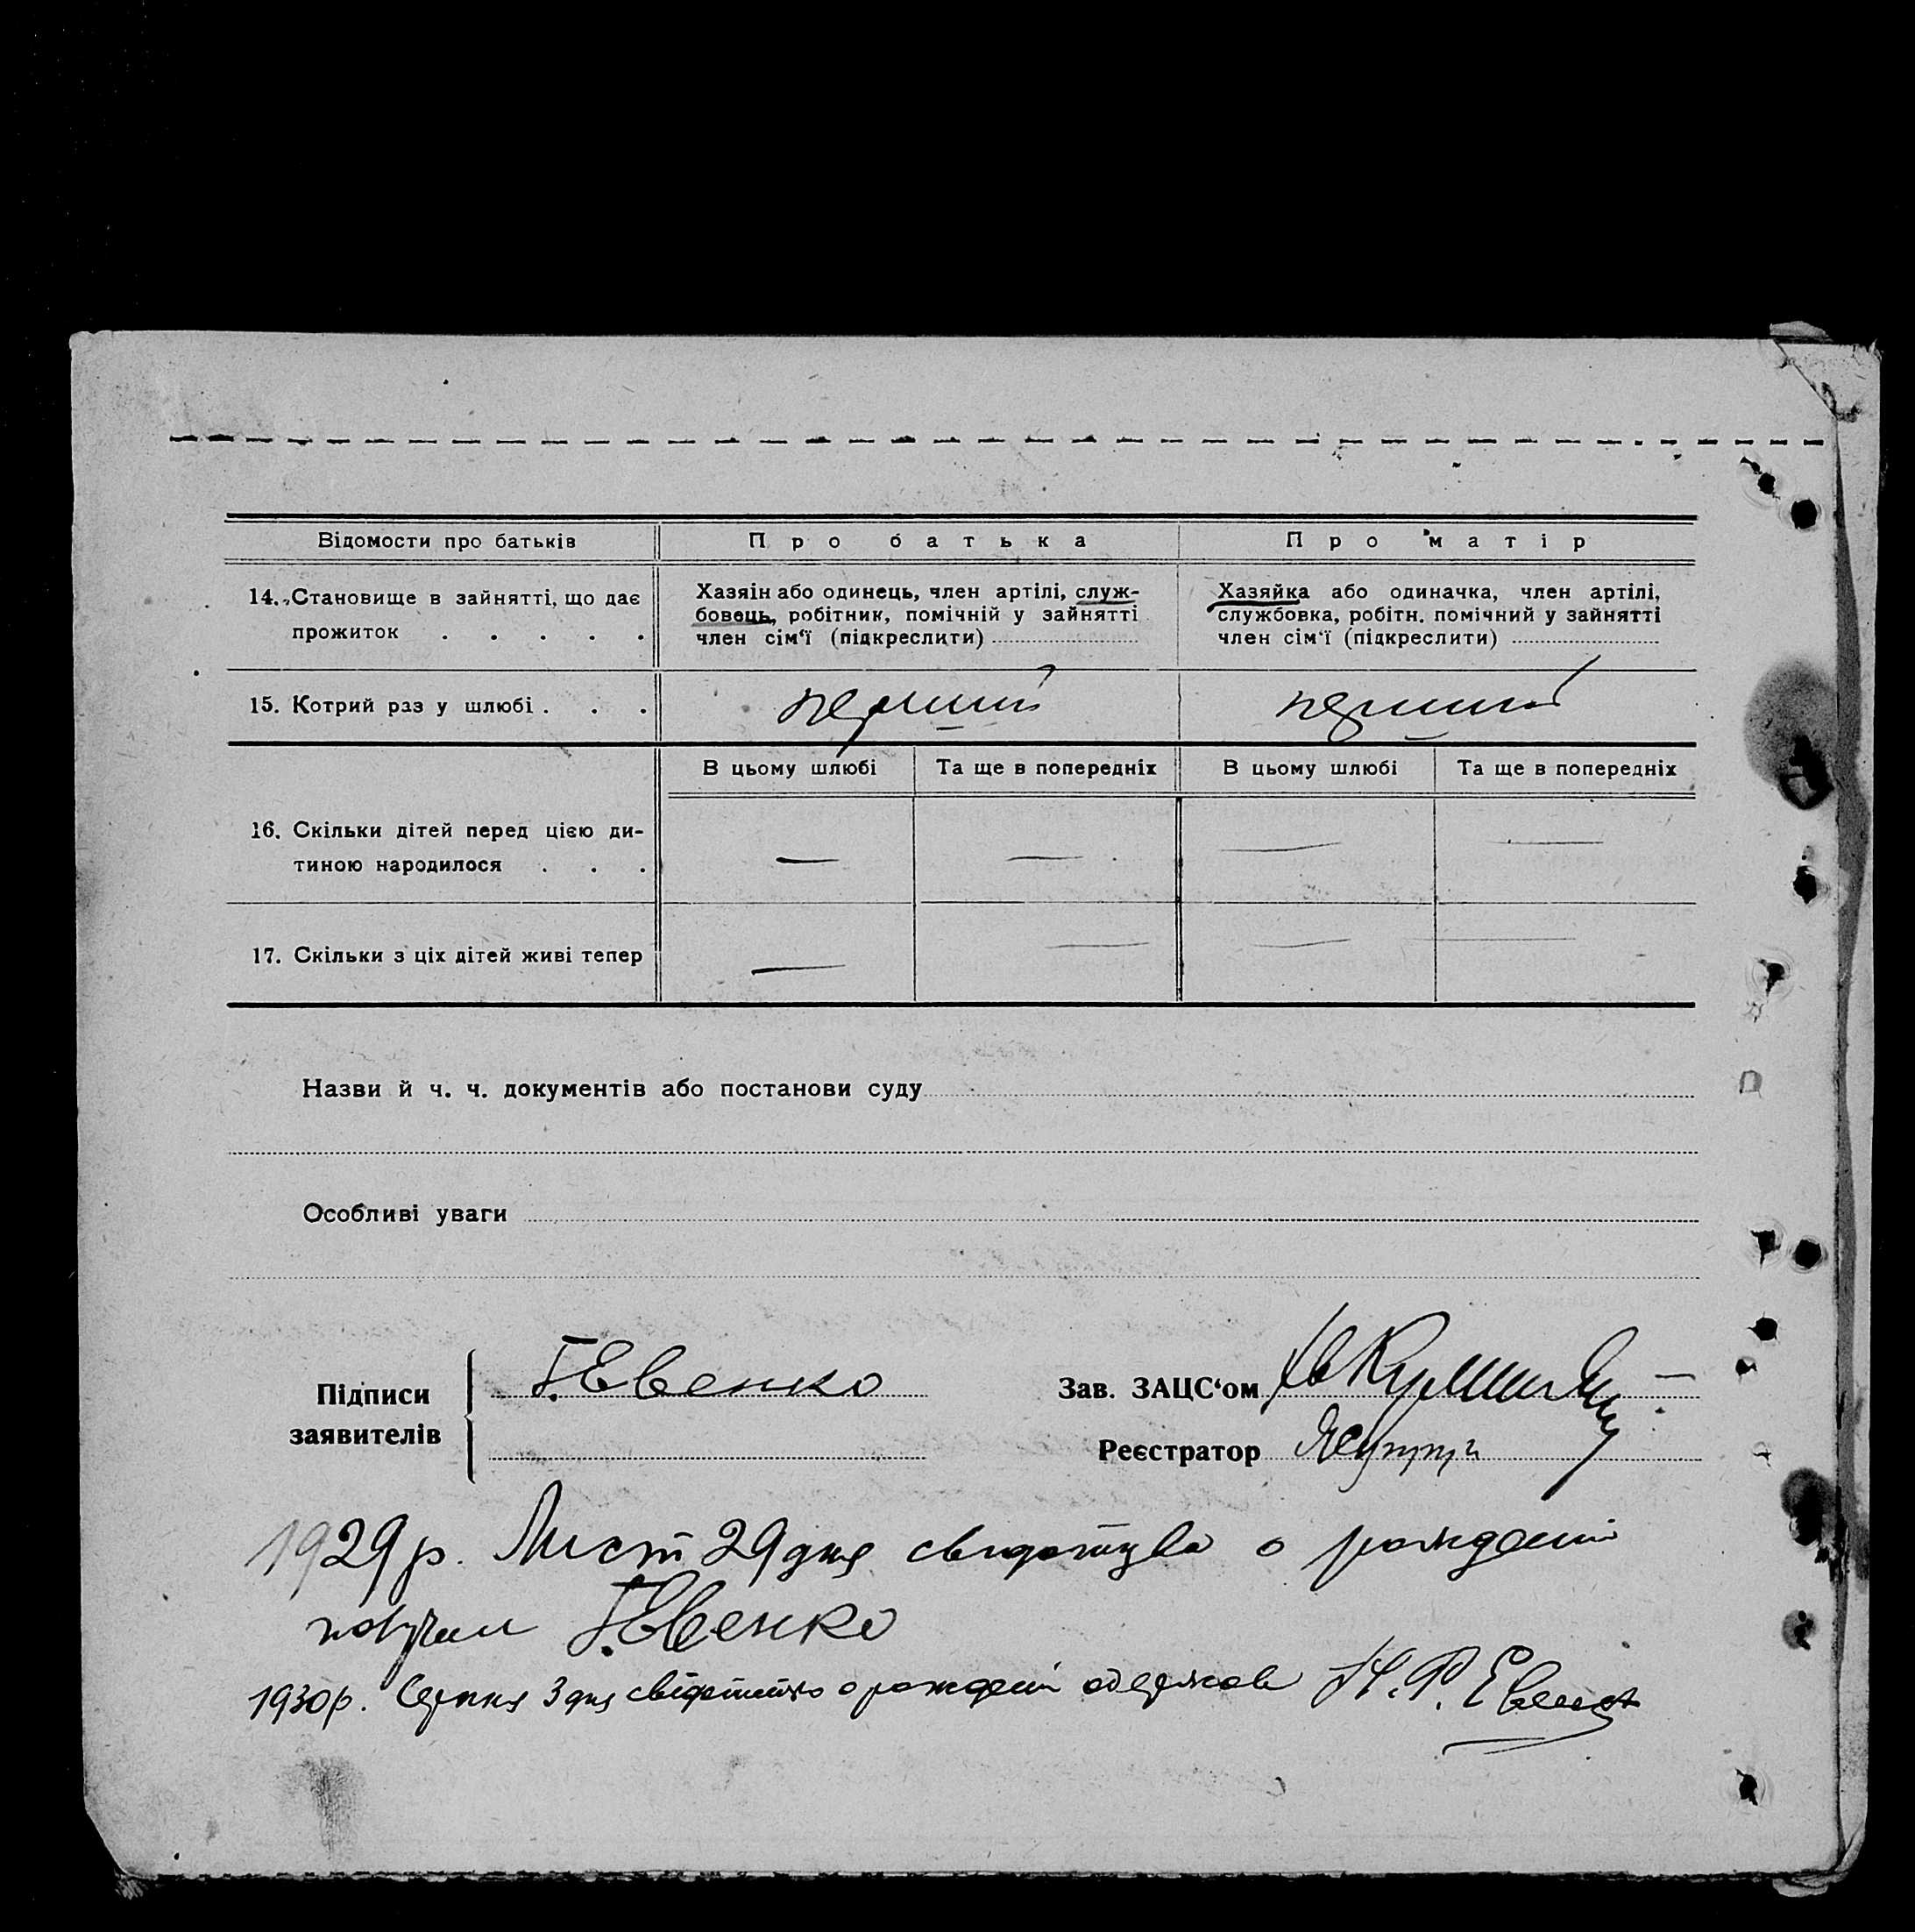 Відомости про батьків
Про батька
Про матір
14. Становище в зайнятті, що дає
прожиток . . . . .
Хазяїн або одинець, член артілі, служ-
бовець, робітник, помічній у зайнятті
член сім'ї (підкреслити)
Хазяйка або одиначка, член артілі,
службовка, робітн. помічний у зайнятті
член сім'ї (підкреслити)
15. Котрий раз у шлюбі . . .
перший
перший
В цьому шлюбі
Та ще в попередніх
В цьому шлюбі
Та ще в попередніх
16. Скільки дітей перед цією ди-
тиною народилося . . .
— — — —
17. Скільки з ціх дітей живі тепер
— — — —
Назви й ч. ч. документів або постанови суду
Особливі уваги
Підписи
заявителів
Г. Евенко
Зав. ЗАЦС'ом
Реєстратор
1929 р. Лист 29 дня о рождении
получил Г. Евенко
1930 р. Серпня 3 дня о одержав